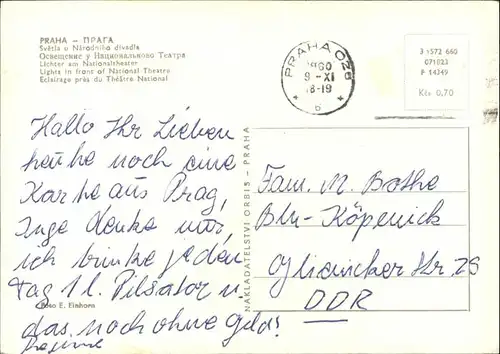 PRAHA – ПРАГА
Světla u Národního divadla
Освещение у Национального Театра
Lichter am Nationaltheater
Lights in front of National Theatre
Eclairage près du Théâtre National
PRAHA 025
1960
9 -XI
18-19
6
3 1572 660
071823
F 14349
Kčs 0,70
Hallo Ihr Lieben
heute noch eine
Karte aus Prag,
Inge denke nur,
ich trinke jeden
Tag 1 l. Pilsator u.
das noch ohne Geld!
Foto E. Einhorn
NAKLADATELSTVÍ ORBIS - PRAHA
Fam. M. Bothe
Bln-Köpenick
Str. 26
DDR